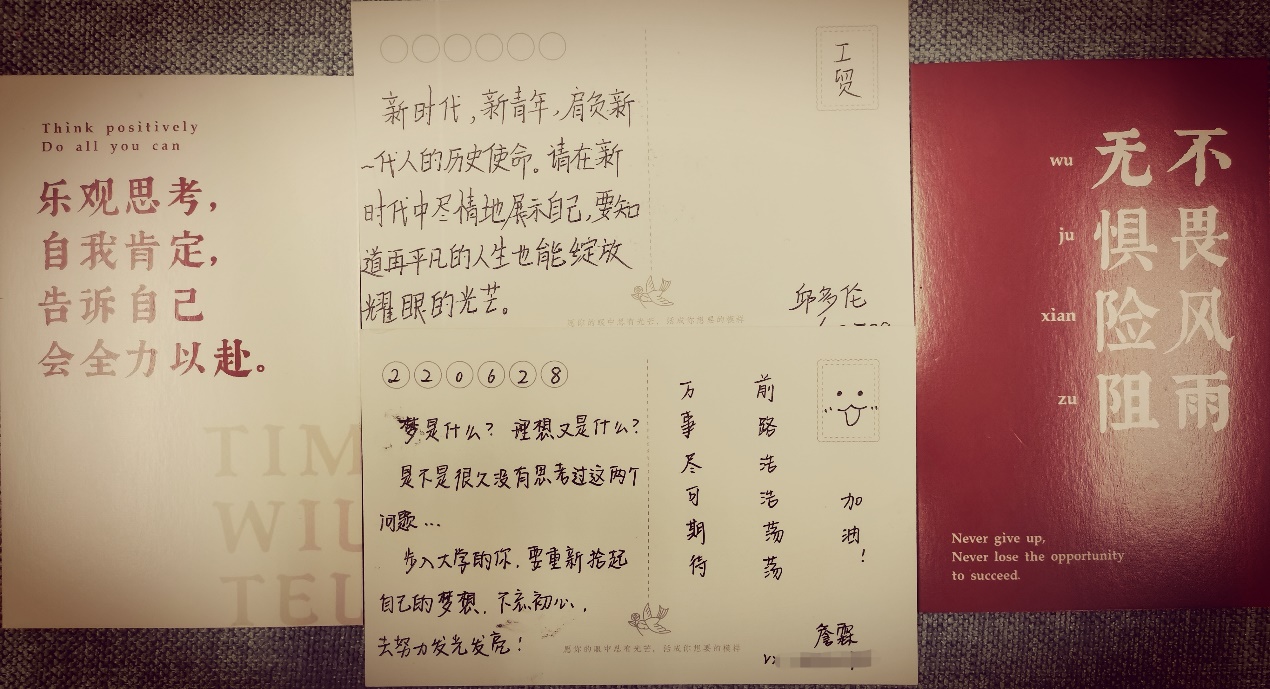 Think positively
Do all you can
乐观思考，
自我肯定，
告诉自己
会全力以赴。
TIM
WIL
TEL
工
贸
新时代，新青年，肩负新
一代人的历史使命。请在新
时代中尽情地展示自己，要知
道再平凡的人生也能绽放
耀眼的光芒。
邱多伦
愿你的眼中总有光芒，活成你想要的模样
220628
梦是什么？理想又是什么？
是不是很久没有思考过这两个
问题…
步入大学的你，要重新拾起
自己的梦想，不忘初心，
去努力发光发亮！
前路浩浩荡荡
万事尽可期待
加油！
詹霖
V:
愿你的眼中总有光芒，活成你想要的模样
不畏风雨
无惧险阻
wu
ju
xian
zu
Never give up,
Never lose the opportunity
to succeed.